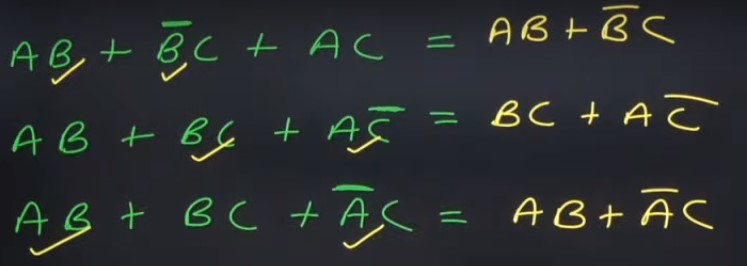 AB + B̅C + AC = AB + B̅C
AB + BC + AC̅ = BC + AC̅
AB + BC + A̅C = AB + A̅C